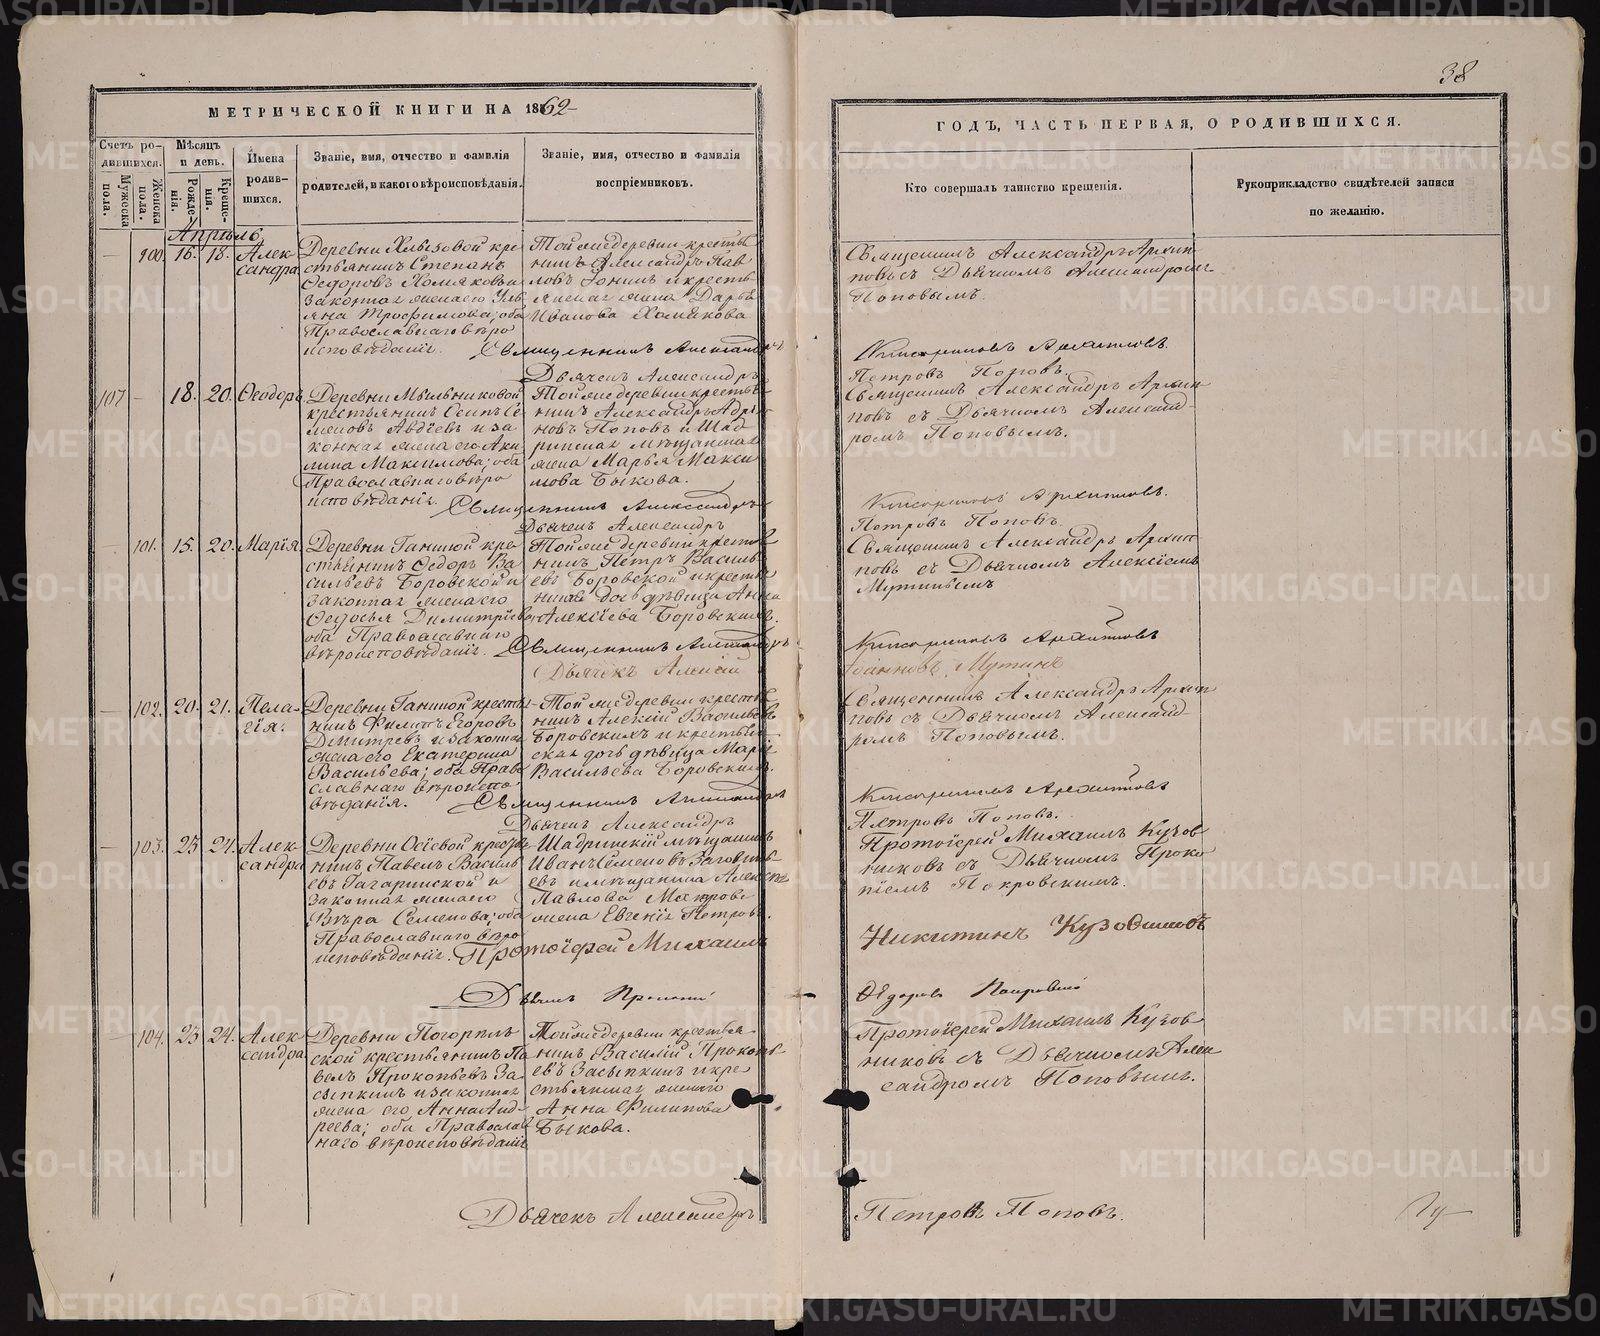 38
МЕТРИЧЕСКОЙ КНИГИ НА 1862
ГОДЪ, ЧАСТЬ ПЕРВАЯ, О РОДИВШИХСЯ.
Счетъ ро-
дившихся.
Мужеска
пола.
Женска
пола.
Мѣсяцъ
и день.
Рожде-
нія.
Креще-
нія.
Имена
родив-
шихся.
Званіе, имя, отчество и фамилія
родителей, и какого вѣроисповѣданія.
Званіе, имя, отчество и фамилія
воспріемниковъ.
Кто совершалъ таинство крещенія.
Рукоприкладство свидѣтелей записи
по желанію.
Апрѣль
100. 16. 18. Алек
сандра
Деревни Хлызовой кре
стьянинъ Степанъ
Ѳедоровъ Хомяковъ и
законная жена его Уль
яна Трофимова; оба
Православнаго вѣро
исповѣданія.
Той же деревни кресть
нинъ Александръ Пав
ловъ и кресть
жена Дарья
Иванова Хомякова
Священникъ Александръ Архип
повъ съ Дьячкомъ Александромъ
Поповымъ.
Священникъ Александръ
Архиповъ.
Дьячекъ Александръ
Петровъ Поповъ.
107 18. 20. Ѳеодоръ
Деревни Мыльниковой
крестьянинъ Осипъ Се
меновъ Авдѣевъ и за
конная жена его Аку
лина Максимова; оба
Православнаго вѣро
исповѣданія.
Той же деревни кресть
нинъ Александръ
Поповъ и Шад
ринская мѣщанская
жена Марья Макси
мова Быкова.
Священникъ Александръ Архип
повъ съ Дьячкомъ Александ-
ромъ Поповымъ.
Священникъ Александръ
Архиповъ.
Дьячекъ Александръ
Петровъ Поповъ.
101. 15. 20. Марія.
Деревни Ганиной кре
стьянинъ Ѳедоръ Ва
сильевъ Боровской и
законная жена его
Ѳедосья Димитріева
оба Православнаго
вѣроисповѣданія.
Той же деревни кресть
нинъ Петръ Василь
евъ Боровской и кресть
дочь дѣвица Анна
Алексіева Боровскихъ.
Священникъ Александръ Архип
повъ съ Дьячкомъ Алексіемъ
Мутинымъ
Священникъ Александръ
Архиповъ
Дьячекъ Алексій
Іоанновъ Мутинъ
102. 20. 21. Пела-
гія.
Деревни Ганиной кресть
нинъ Филипъ Егоровъ
Дмитревъ и законная
жена его Екатерина
Васильева; оба Право
славнаго вѣроиспо
вѣданія.
Той же деревни кресть
нинъ Алексій Васильевъ
Боровскихъ и крестьян
ская дочь дѣвица Марья
Васильева Боровскихъ.
Священникъ Александръ Архип
повъ съ Дьячкомъ Александ-
ромъ Поповымъ.
Священникъ Александръ
Архиповъ
Дьячекъ Александръ
Петровъ Поповъ.
103. 23 24. Алек
сандра
Деревни Осіевой кресть
нинъ Павелъ Василь
евъ Гагаринской и
законная жена его
Вѣра Семенова; оба
Православнаго вѣро
исповѣданія.
Шадринскій мѣщанинъ
Иванъ Семеновъ
евъ и мѣщанина Алексѣя
Павлова
жена Евгенія Петрова.
Протоіерей Михаилъ Кузов
никовъ съ Дьячкомъ Проко
піемъ Покровскимъ.
Протоіерей Михаилъ
Никитинъ Кузовниковъ
Дьячекъ Прокопій
Ѳедоровъ Покровскій
104. 23 24. Алек
сандра
Деревни Погорѣль
ской крестьянинъ Па
велъ Прокопьевъ За
сыпкинъ и законная
жена его Анна Анд-
реева; оба Православ
наго вѣроисповѣданія
Той же деревни крестья
нинъ Василій Прокопь-
евъ Засыпкинъ и кре
стьянская жена
Анна Филипова
Быкова.
Протоіерей Михаилъ Кузов
никовъ съ Дьячкомъ Алек
сандромъ Поповымъ.
Дьячекъ Александръ
Петровъ Поповъ.
METRIKI.GASO-URAL.RU